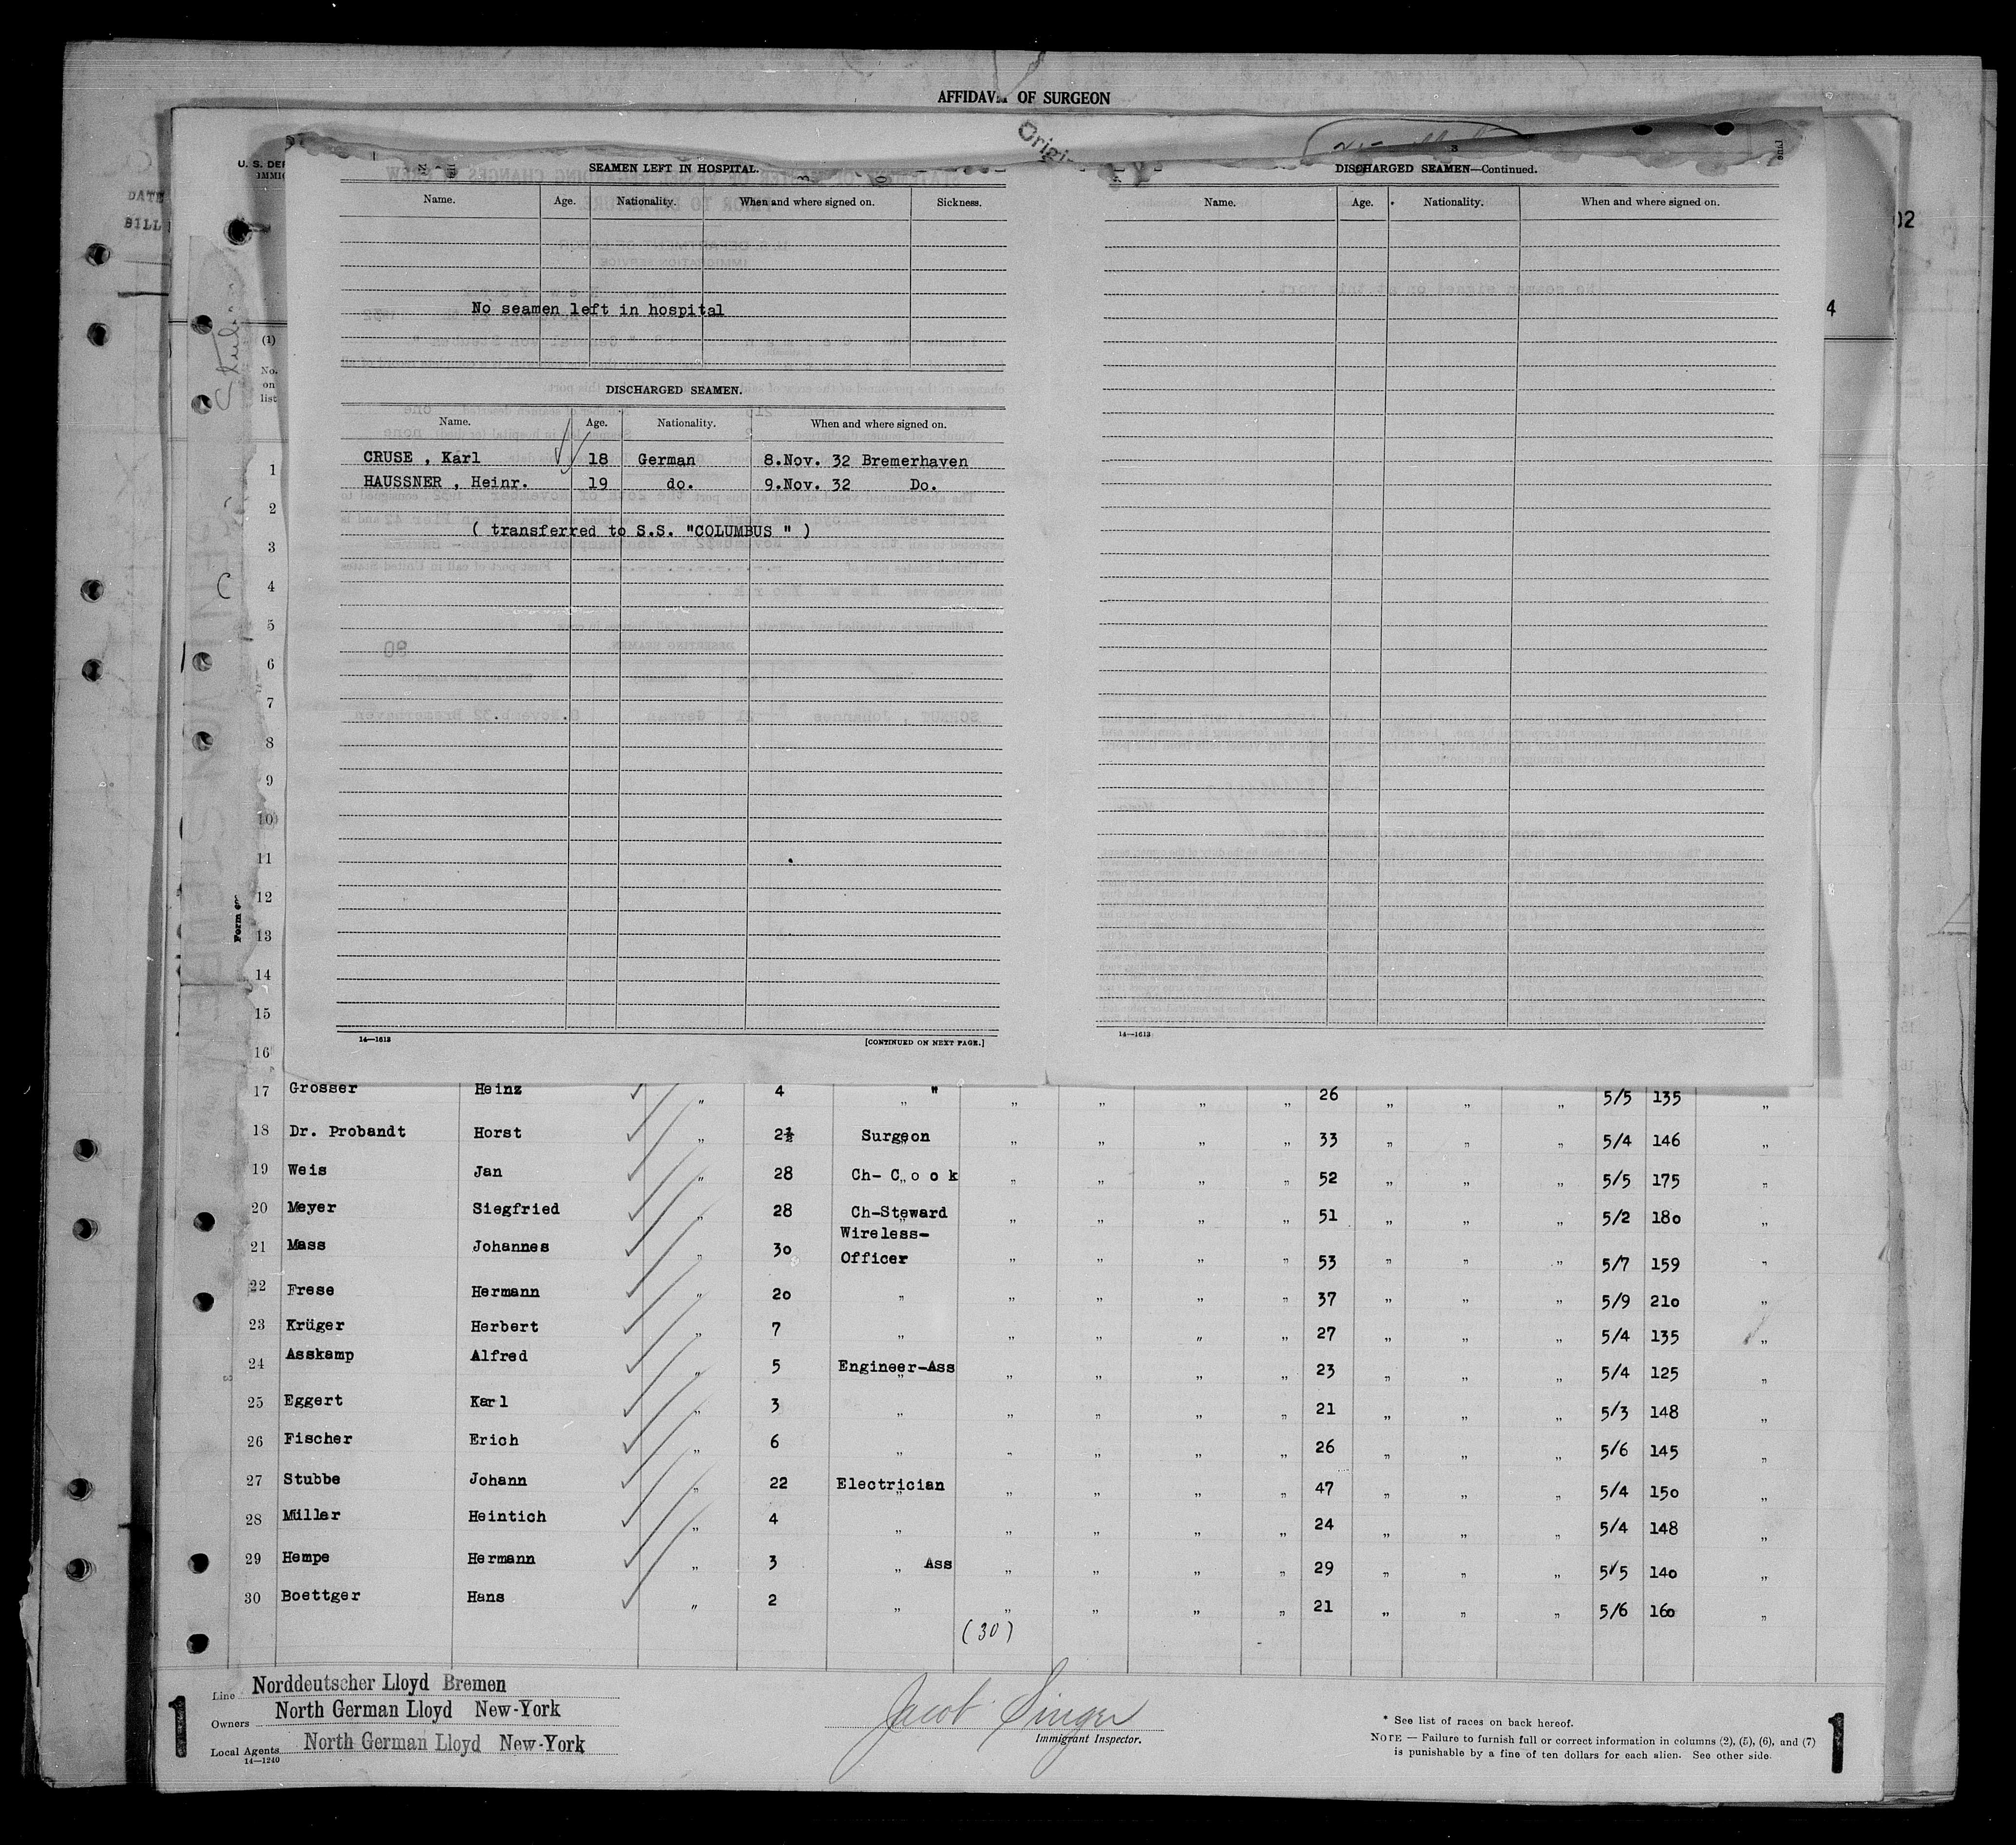 AFFIDAVIT OF SURGEON
DATE
BILL
U. S. DEP
IMMIG
Origi
02
4
SEAMEN LEFT IN HOSPITAL.
Name. Age. Nationality. When and where signed on. Sickness.
No seamen left in hospital
DISCHARGED SEAMEN.
Name. Age. Nationality. When and where signed on.
CRUSE , Karl 18 German 8.Nov. 32 Bremerhaven
HAUSSNER , Heinr. 19 do. 9.Nov. 32 Do.
( transferred to S.S. "COLUMBUS " )
14—1613 [CONTINUED ON NEXT PAGE.]
3
DISCHARGED SEAMEN—Continued.
Name. Age. Nationality. When and where signed on.
14—1613
(1)
No.
on
list
1
2
3
4
5
6
7
8
9
10
11
12
13
14
15
16
Form 
17 Grosser Heinz „ 4 „ " „ „ „ „ 26 „ „ „ 5/5 135 „
18 Dr. Probandt Horst „ 2½ Surgeon „ „ „ „ 33 „ „ „ 5/4 146 „
19 Weis Jan „ 28 Ch- C o o k „ „ „ „ 52 „ „ „ 5/5 175 „
20 Meyer Siegfried „ 28 Ch-Steward „ „ „ „ 51 „ „ „ 5/2 180 „
21 Mass Johannes „ 30 Wireless-
Officer „ „ „ „ 53 „ „ „ 5/7 159 „
22 Frese Hermann „ 20 „ „ „ „ „ 37 „ „ „ 5/9 210 „
23 Krüger Herbert „ 7 „ „ „ „ „ 27 „ „ „ 5/4 135 „
24 Asskamp Alfred „ 5 Engineer-Ass „ „ „ „ 23 „ „ „ 5/4 125 „
25 Eggert Karl „ 3 „ „ „ „ „ 21 „ „ „ 5/3 148 „
26 Fischer Erich „ 6 „ „ „ „ „ 26 „ „ „ 5/6 145 „
27 Stubbe Johann „ 22 Electrician „ „ „ „ 47 „ „ „ 5/4 150 „
28 Müller Heintich „ 4 „ „ „ „ „ 24 „ „ „ 5/4 148 „
29 Hempe Hermann „ 3 „ Ass „ „ „ „ 29 „ „ „ 5/5 140 „
30 Boettger Hans „ 2 „ „ „ „ „ 21 „ „ „ 5/6 160 „
(30)
1
Line Norddeutscher Lloyd Bremen
Owners North German Lloyd New-York
Local Agents North German Lloyd New-York
14—1240
Jacob Singer
Immigrant Inspector.
* See list of races on back hereof.
NOTE — Failure to furnish full or correct information in columns (2), (5), (6), and (7)
is punishable by a fine of ten dollars for each alien. See other side.
1